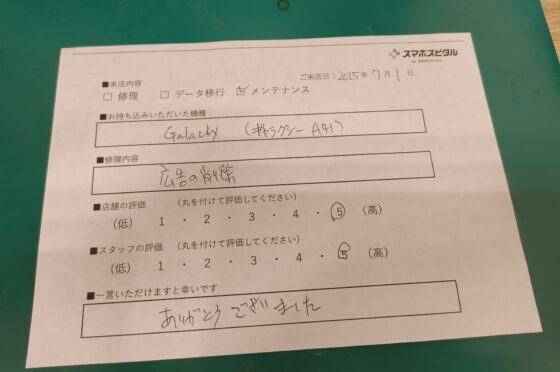 スマホスピタル
ご来店日：2025年 7月 1日
■来店内容
□ 修理 □ データ移行 ☑ メンテナンス
■お持ち込みいただいた機種
Galaxy （ギャラクシー A41）
■修理内容
広告の削除
■店舗の評価 （丸を付けて評価してください）
（低） 1 ・ 2 ・ 3 ・ 4 ・ 5 （高）
■スタッフの評価 （丸を付けて評価してください）
（低） 1 ・ 2 ・ 3 ・ 4 ・ 5 （高）
■一言いただけますと幸いです
ありがとうございました